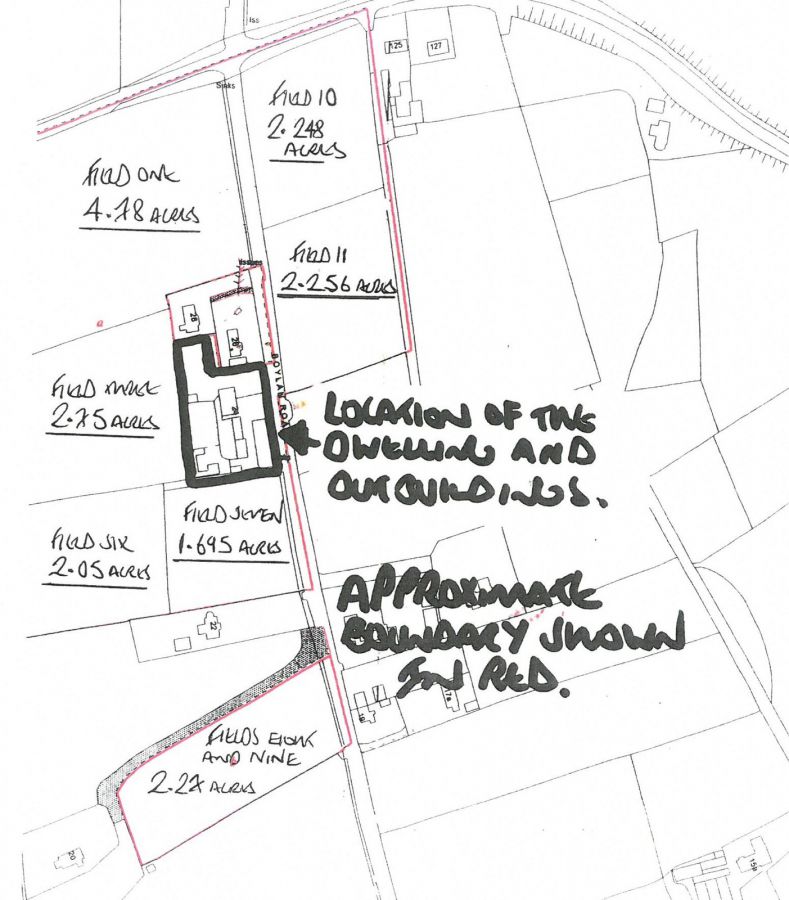 Iss
125
127
Sinks
FIELD 10
2.248
ACRES
FIELD ONE
4.78 ACRES
FIELD 11
2.256 ACRES
Issues
28
26
BOYLAN ROAD
FIELD THREE
2.75 ACRES
24
LOCATION OF THE
DWELLING AND
OUTBUILDINGS.
FIELD SEVEN
1.695 ACRES
FIELD SIX
2.05 ACRES
22
APPROXIMATE
BOUNDARY SHOWN
IN RED.
17a
FIELDS EIGHT
AND NINE
2.27 ACRES
20